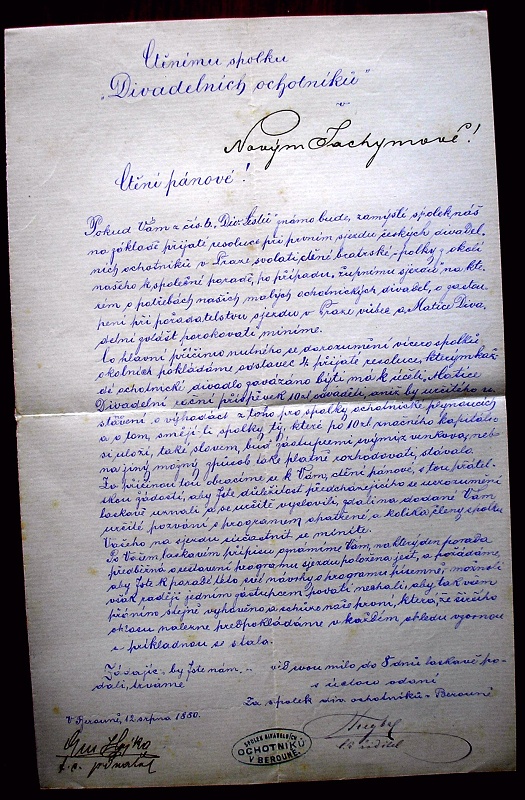 Ctěnímu spolku
„Divadelních ochotníků"
v
Novým Jáchymově!
Ctění pánové!
Pokud Vám z čís. te, Div. Listů" známo bude, zamýšlí spolek náš
na základě přijaté resoluce při prvním sjezdu českých divadel.
ních ochotníků v Praze svolati ctěné bratrské spolky z okolí
našeho k společné poradě, po případu, župnímu sjezdu" na kte-
rém o potřebách našich malých ochotnických divadel, o zastou-
pení při pořadatelstvu sjezdu v Praze vůbec a „Matice Diva-
delní zvlášť porokovati míníme.
Co hlavní příčinu nutného se dorozumění vícero spolků
okolních pokládáme odstavec přijaté resoluce, kterým kaž-
dé ochotnické divadlo zavázáno býti má k účeli „Matice
Divadelní roční příspěvek 10 zl odváděti, aniž by určitého se
o výhodách z toho pro spolky ochotnické plynoucích
a o tom, smějí-li spolky ty, které po 10 zl značného kapitálu
si uloží, také slovem, buď zástupcemi svými z venkova, neb
na jiný možný způsob také platně rozhodovati, stávalo.
Za příčinou tou obracíme se k Vám, ctění pánové, s tou přátel-
skou žádostí, aby Jste důležitost předcházejícího se uvrozumění
uznali a se určitě vyslovili, zdali na dodané Vám
určité pozvání s programem opatřené, a kolika členy spolku
Vašeho na sjezdu súčastniti se míníte.
Po Vašem laskavém přípisu oznámíme Vám, na který den porada
předběžná o sestavení programu sjezdu položena jest, a požádáme,
aby Jste k poradě této své návrhy o programu písemně, možno-li
však raději jedním zástupcem podati nechali, aby tak všem
přáním stejně vyhověno a schůze naše první, která, že širšího
ohlasu nalezne předpokládáme v každém ohledu vzornou
a příkladnou se stala.
Žádajíce, by Jste nám odpověď svou milo do 8 dnů laskavě po-
dali, trváme s úctou oddaní
Za spolek div. ochotníků v Berouně
V Berouně, 12 srpna 1880.
SPOLEK DIVADELNÍCH
OCHOTNÍKŮ
V BEROUNĚ